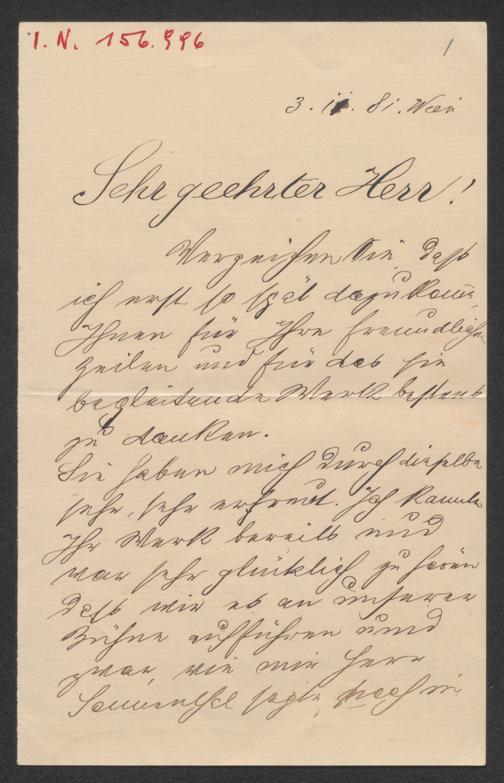 I. N. 156.996
1
3. 81. Wien
Sehr geehrter Herr!
Verzeihen Sie daß
ich erst so spät dazu komme,
Ihnen für Ihre freundlichen
Zeilen und für das sie
begleitende Werk bestens
zu danken.
Sie haben mich durch dieselbe
sehr, sehr erfreut. Ich kannte
Ihr Werk bereits und
war sehr glücklich zu hören
daß wir es an unserer
Bühne aufführen und
zwar, wie mir Herr
Sonnenthal sagte, noch in